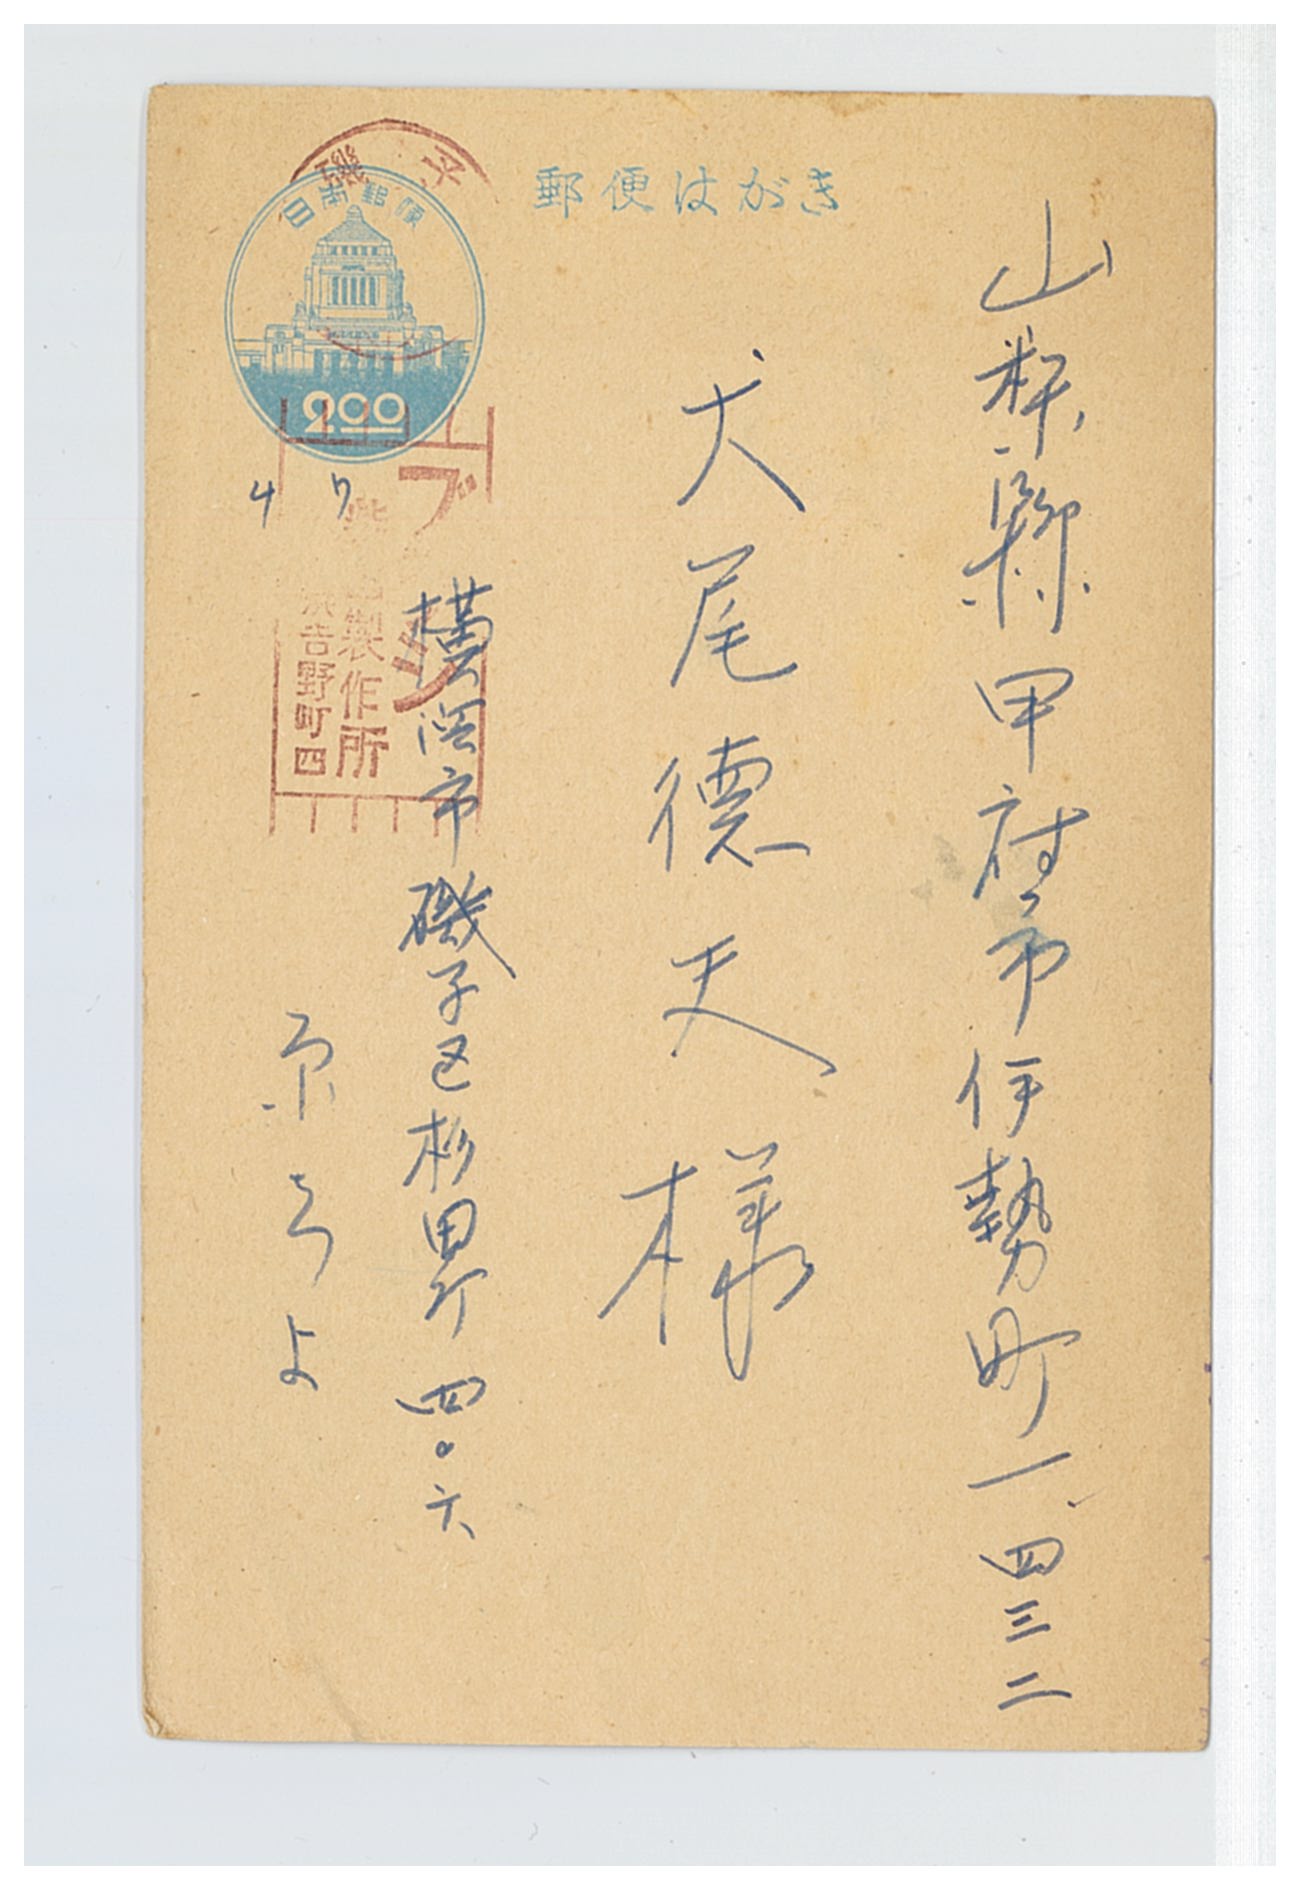 郵便はがき
山梨縣甲府市伊勢町一、四三二
犬尾德夫様
横浜市磯子区杉田町四〇六
京きよ
4 7
磯子
日本郵便
2.00
ブラシ
製作所
吉野町四